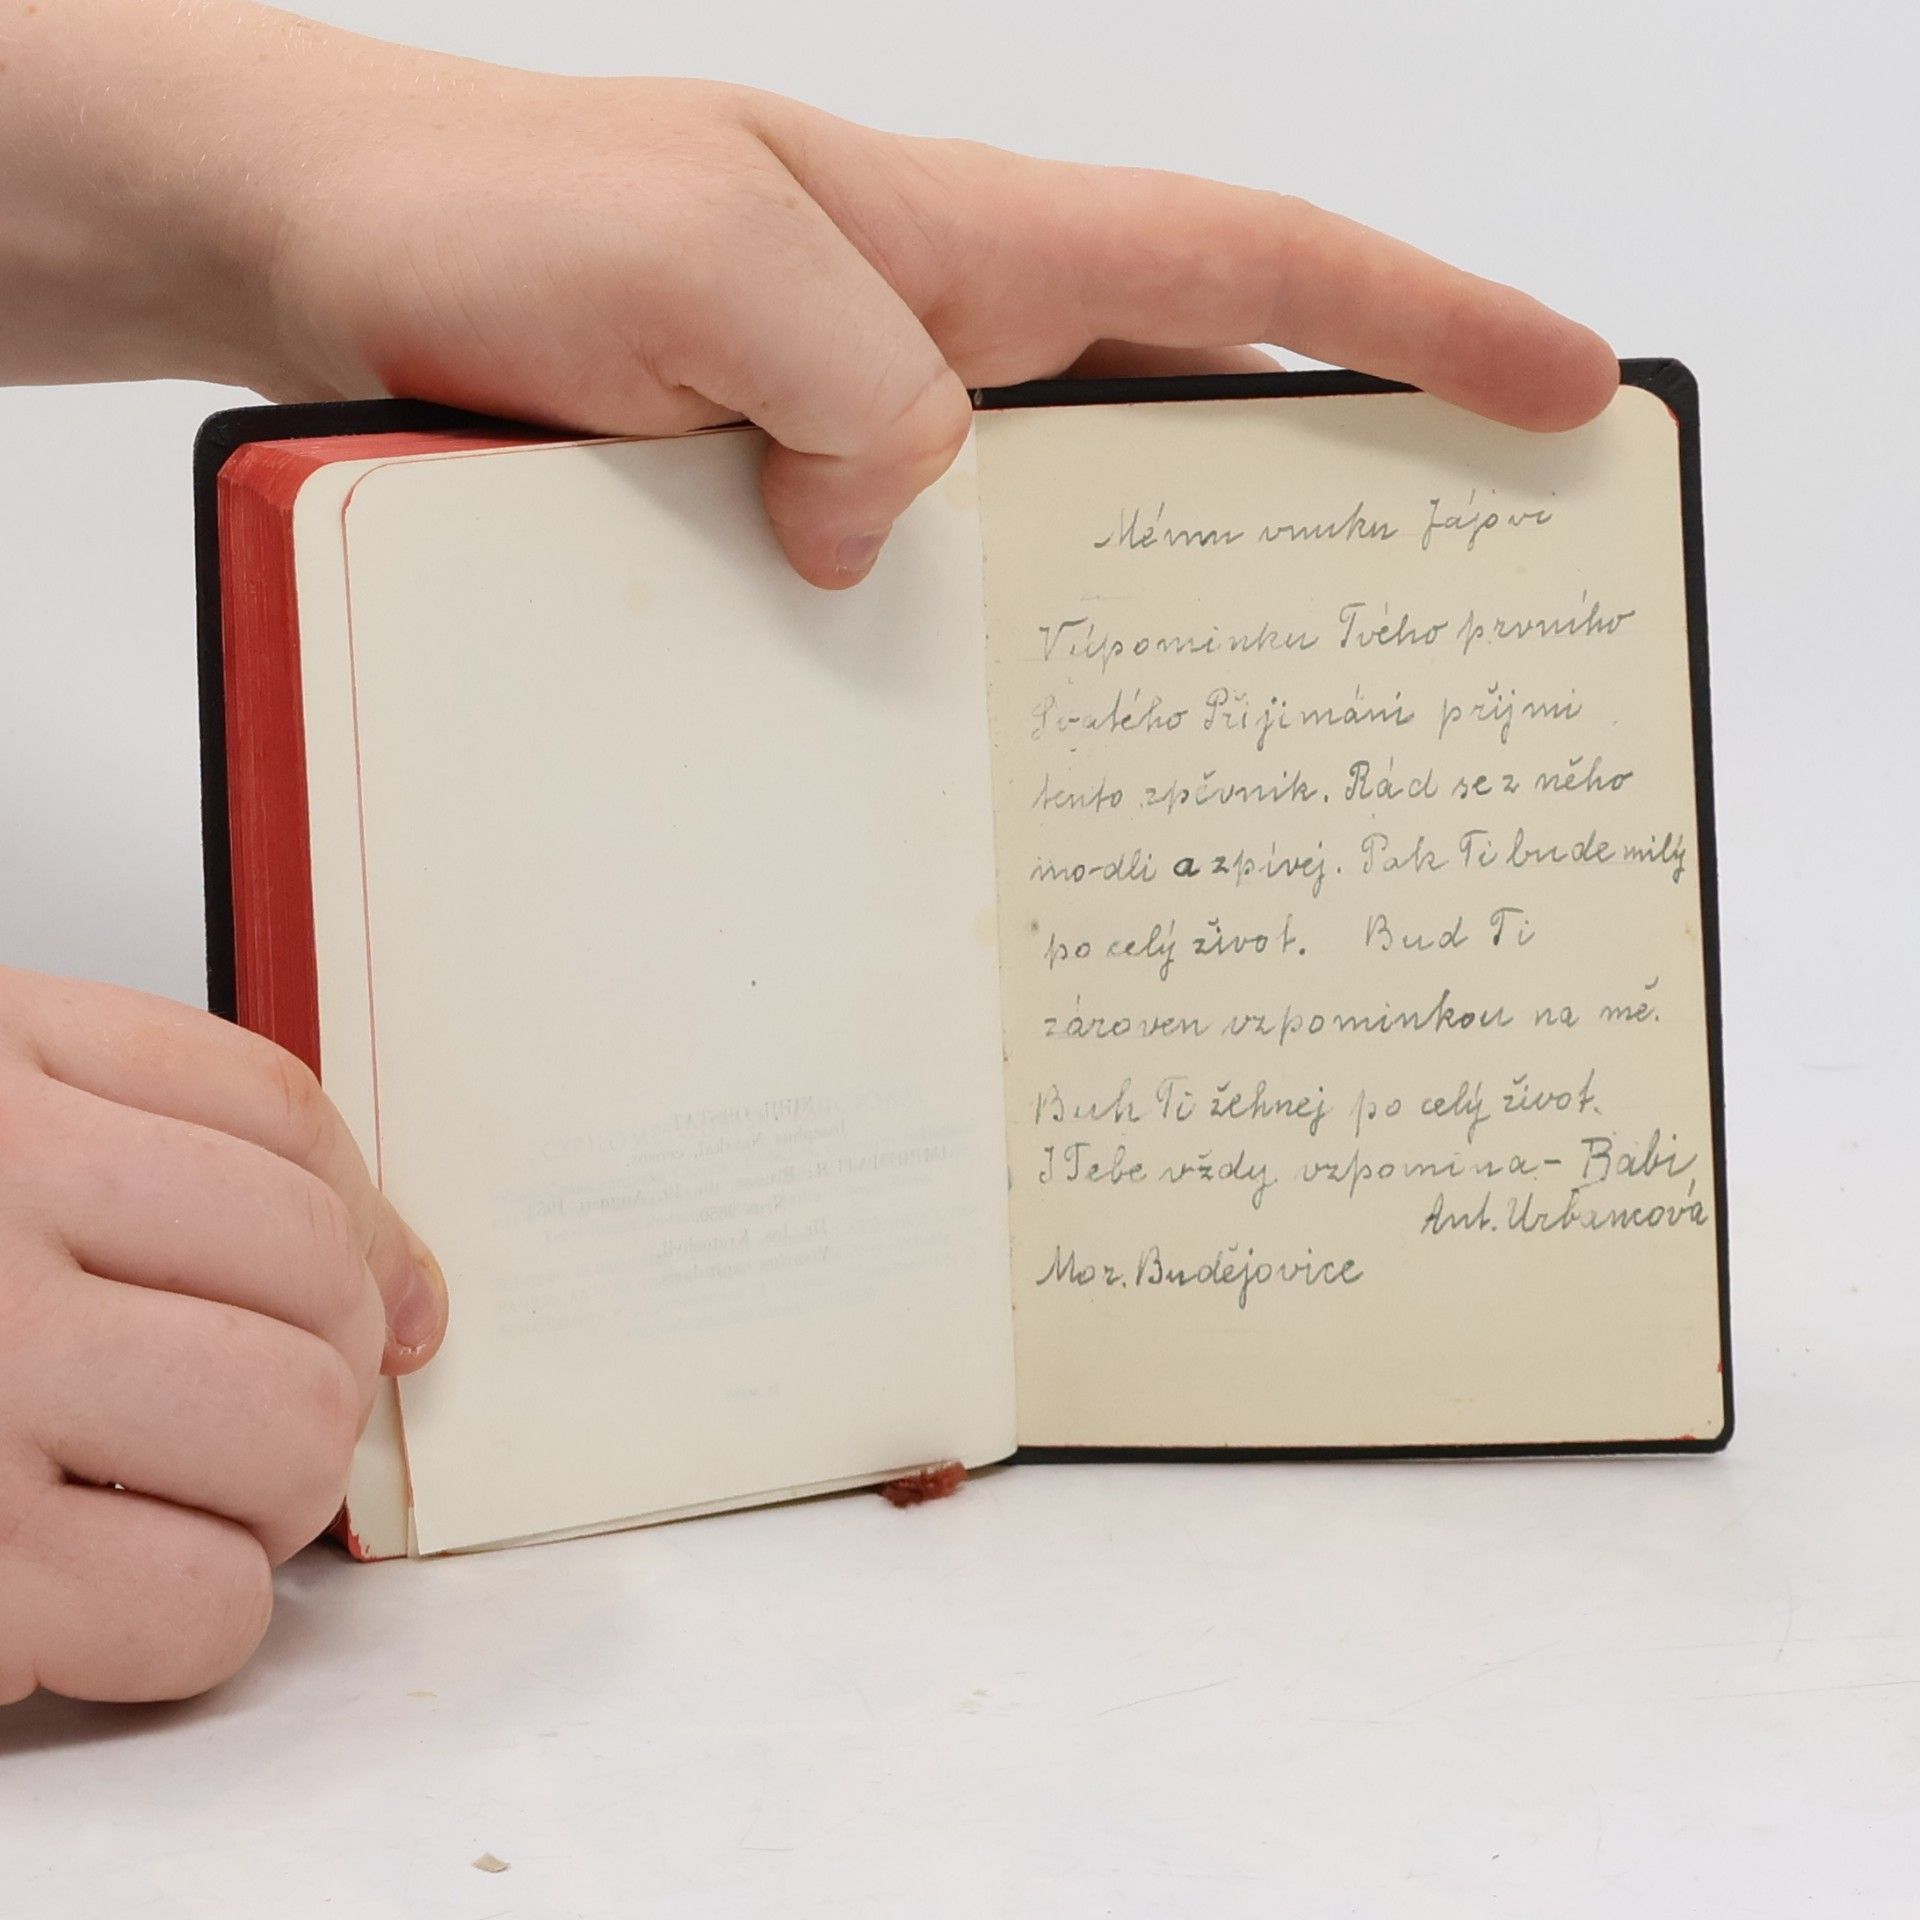 Mému vnuku Jájovi
Vúpominku Tvého prvního
Svatého Přijimáni přijmi
tento zpěvnik. Rád se z něho
modli a zpívej. Pak Ti bude milý
po celý život. Bud Ti
zároven vzpominkou na mě.
Buh Ti žehnej po celý život.
I Tebe vždy vzpomina- Babi
Ant. Urbancová
Mor. Budějovice
NIHIL OBSTAT
censor